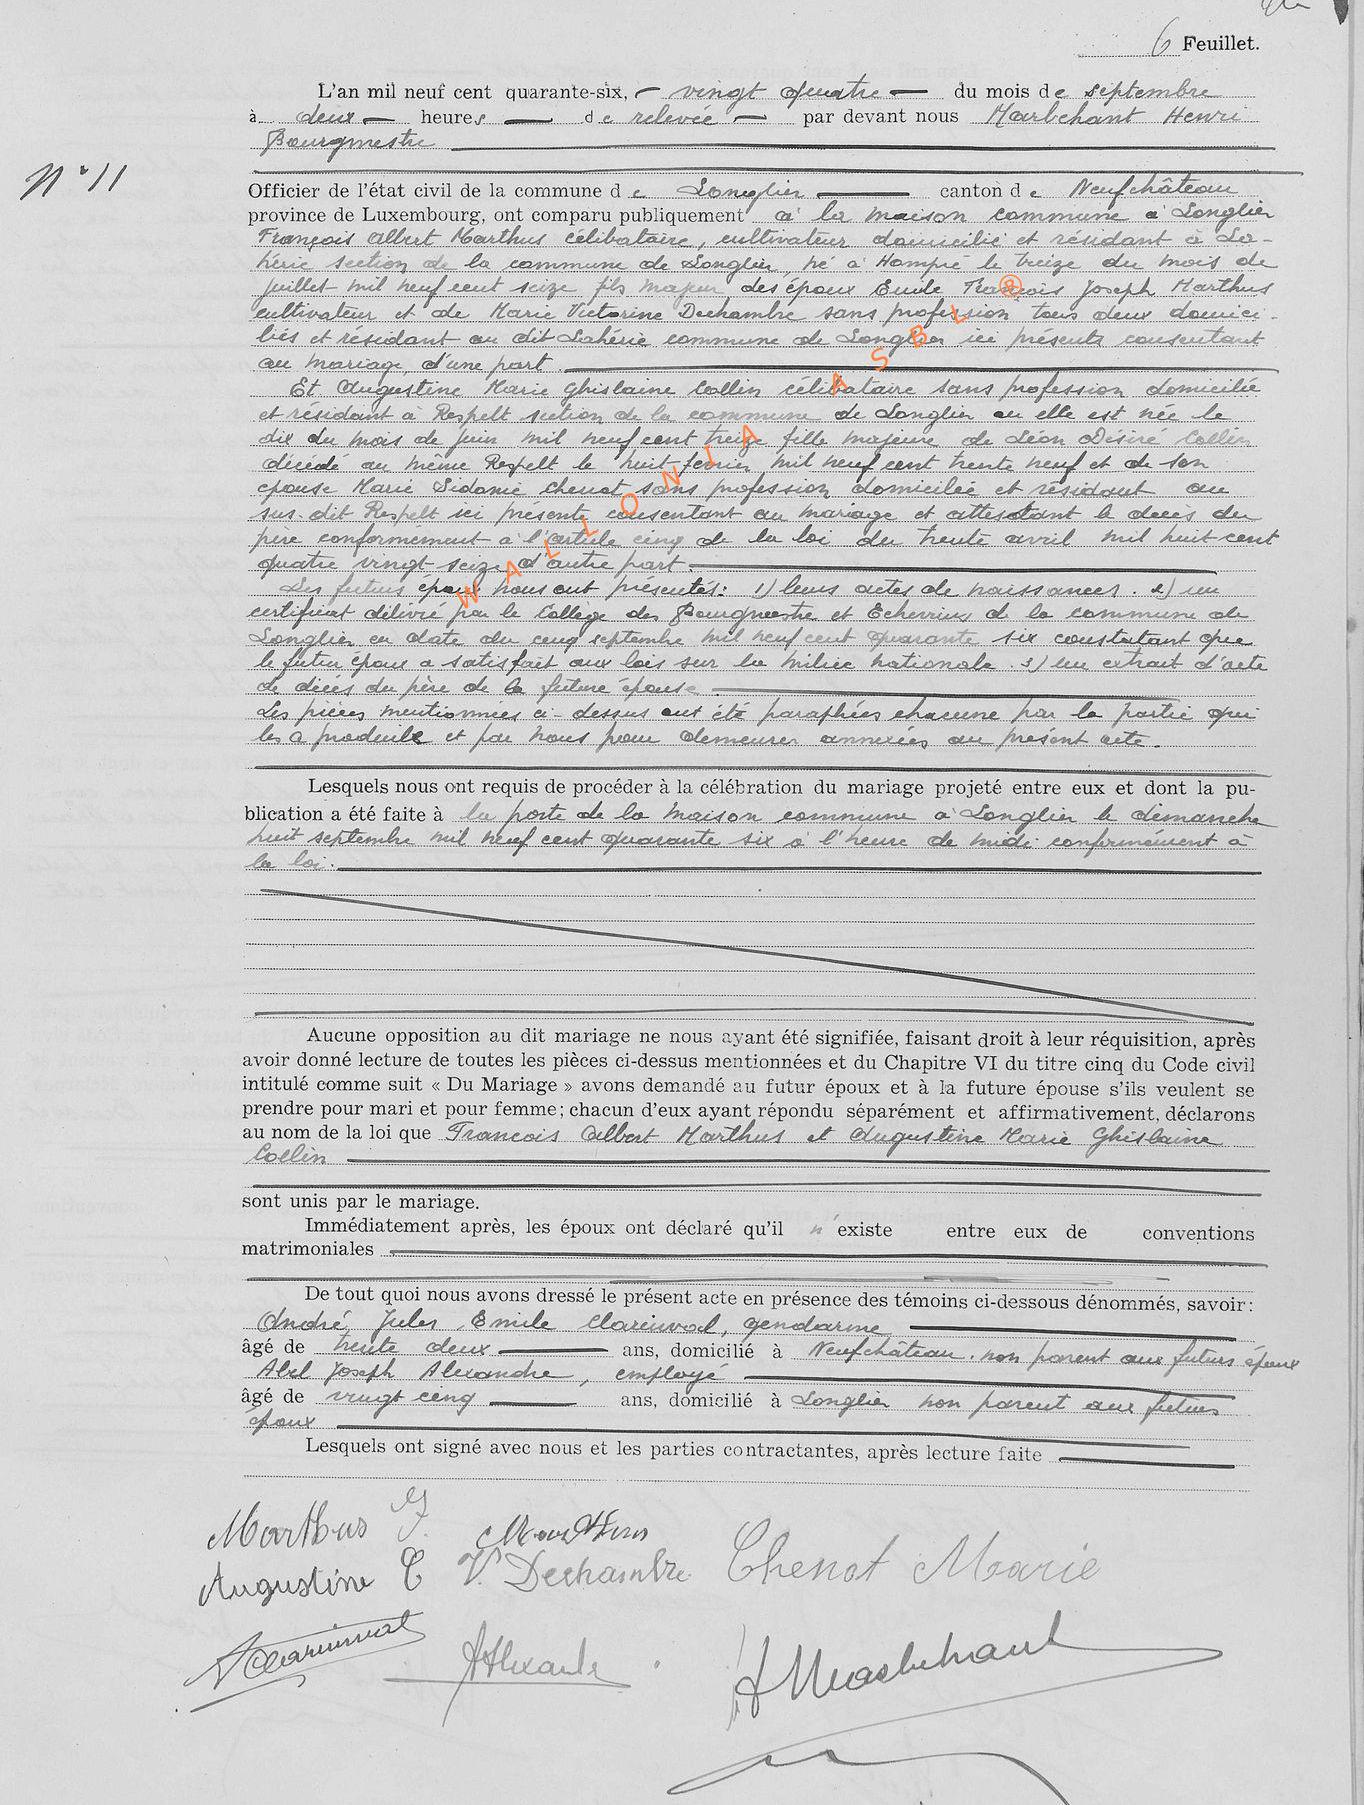 6 Feuillet.
L'an mil neuf cent quarante-six, vingt quatre du mois de septembre
à deux heures de relevée par devant nous Marbehant Henri
Bourgmestre
N° 11
Officier de l'état civil de la commune de Longlier canton de Neufchâteau
province de Luxembourg, ont comparu publiquement à la maison commune à Longlier
François Albert Marthus célibataire, cultivateur domicilié et résidant à La-
hérie section de la commune de Longlier, né à Hompré le treize du mois de
juillet mil neuf cent seize fils majeur des époux Emile François Joseph Marthus
cultivateur et de Marie Victorine Dechambre sans profession tous deux domici-
liés et résidant au dit Lahérie commune de Longlier ici présents consentant
au mariage, d'une part.
Et Augustine Marie Ghislaine Collin célibataire sans profession domiciliée
et résidant à Respelt section de la commune de Longlier ou elle est née le
dix du mois de juin mil neuf cent treize fille majeure de Léon Désiré Collin
décédé au même Respelt le huit février mil neuf cent trente neuf et de son
epouse Marie Sidonie Chenot sans profession domiciliée et résidant au
sus-dit Respelt ici présente consentant au mariage et attestant le décès du
père conformement à l'article cinq de la loi du trente avril mil huit cent
quatre vingt seize, d'autre part.
Les futurs époux nous ont présentés: 1) leurs actes de naissances. 2) un
certificat délivré par le Collège des Bourgmestre et Echevins de la commune de
Longlier en date du cinq septembre mil neuf cent quarante six constatant que
le futur époux a satisfait aux lois sur la milice nationale. 3) un extrait d'acte
de décès du père de la future épouse.
Les pièces mentionnées ci-dessus ont été paraphées chacune par la partie qui
les a produite et par nous pour demeurer annexées au présent acte.
Lesquels nous ont requis de procéder à la célébration du mariage projeté entre eux et dont la pu-
blication a été faite à la porte de la maison commune à Longlier le dimanche
huit septembre mil neuf cent quarante six à l'heure de midi conformément à
la loi.
Aucune opposition au dit mariage ne nous ayant été signifiée, faisant droit à leur réquisition, après
avoir donné lecture de toutes les pièces ci-dessus mentionnées et du Chapitre VI du titre cinq du Code civil
intitulé comme suit « Du Mariage » avons demandé au futur époux et à la future épouse s'ils veulent se
prendre pour mari et pour femme; chacun d'eux ayant répondu séparément et affirmativement, déclarons
au nom de la loi que François Albert Marthus et Augustine Marie Ghislaine
Collin
sont unis par le mariage.
Immédiatement après, les époux ont déclaré qu'il n'existe entre eux de conventions
matrimoniales
De tout quoi nous avons dressé le présent acte en présence des témoins ci-dessous dénommés, savoir:
André Jules Emile Clarinval, gendarme
âgé de trente deux ans, domicilié à Neufchâteau. non parent aux futurs époux
Abel Joseph Alexandre, employé
âgé de vingt cinq ans, domicilié à Longlier non parent aux futurs
époux
Lesquels ont signé avec nous et les parties contractantes, après lecture faite
Marthus F. Marthus
Augustine C V. Dechambre Chenot Marie
A Clarinval AAlexandre H Marbehant
WALLONIA ASBL ®